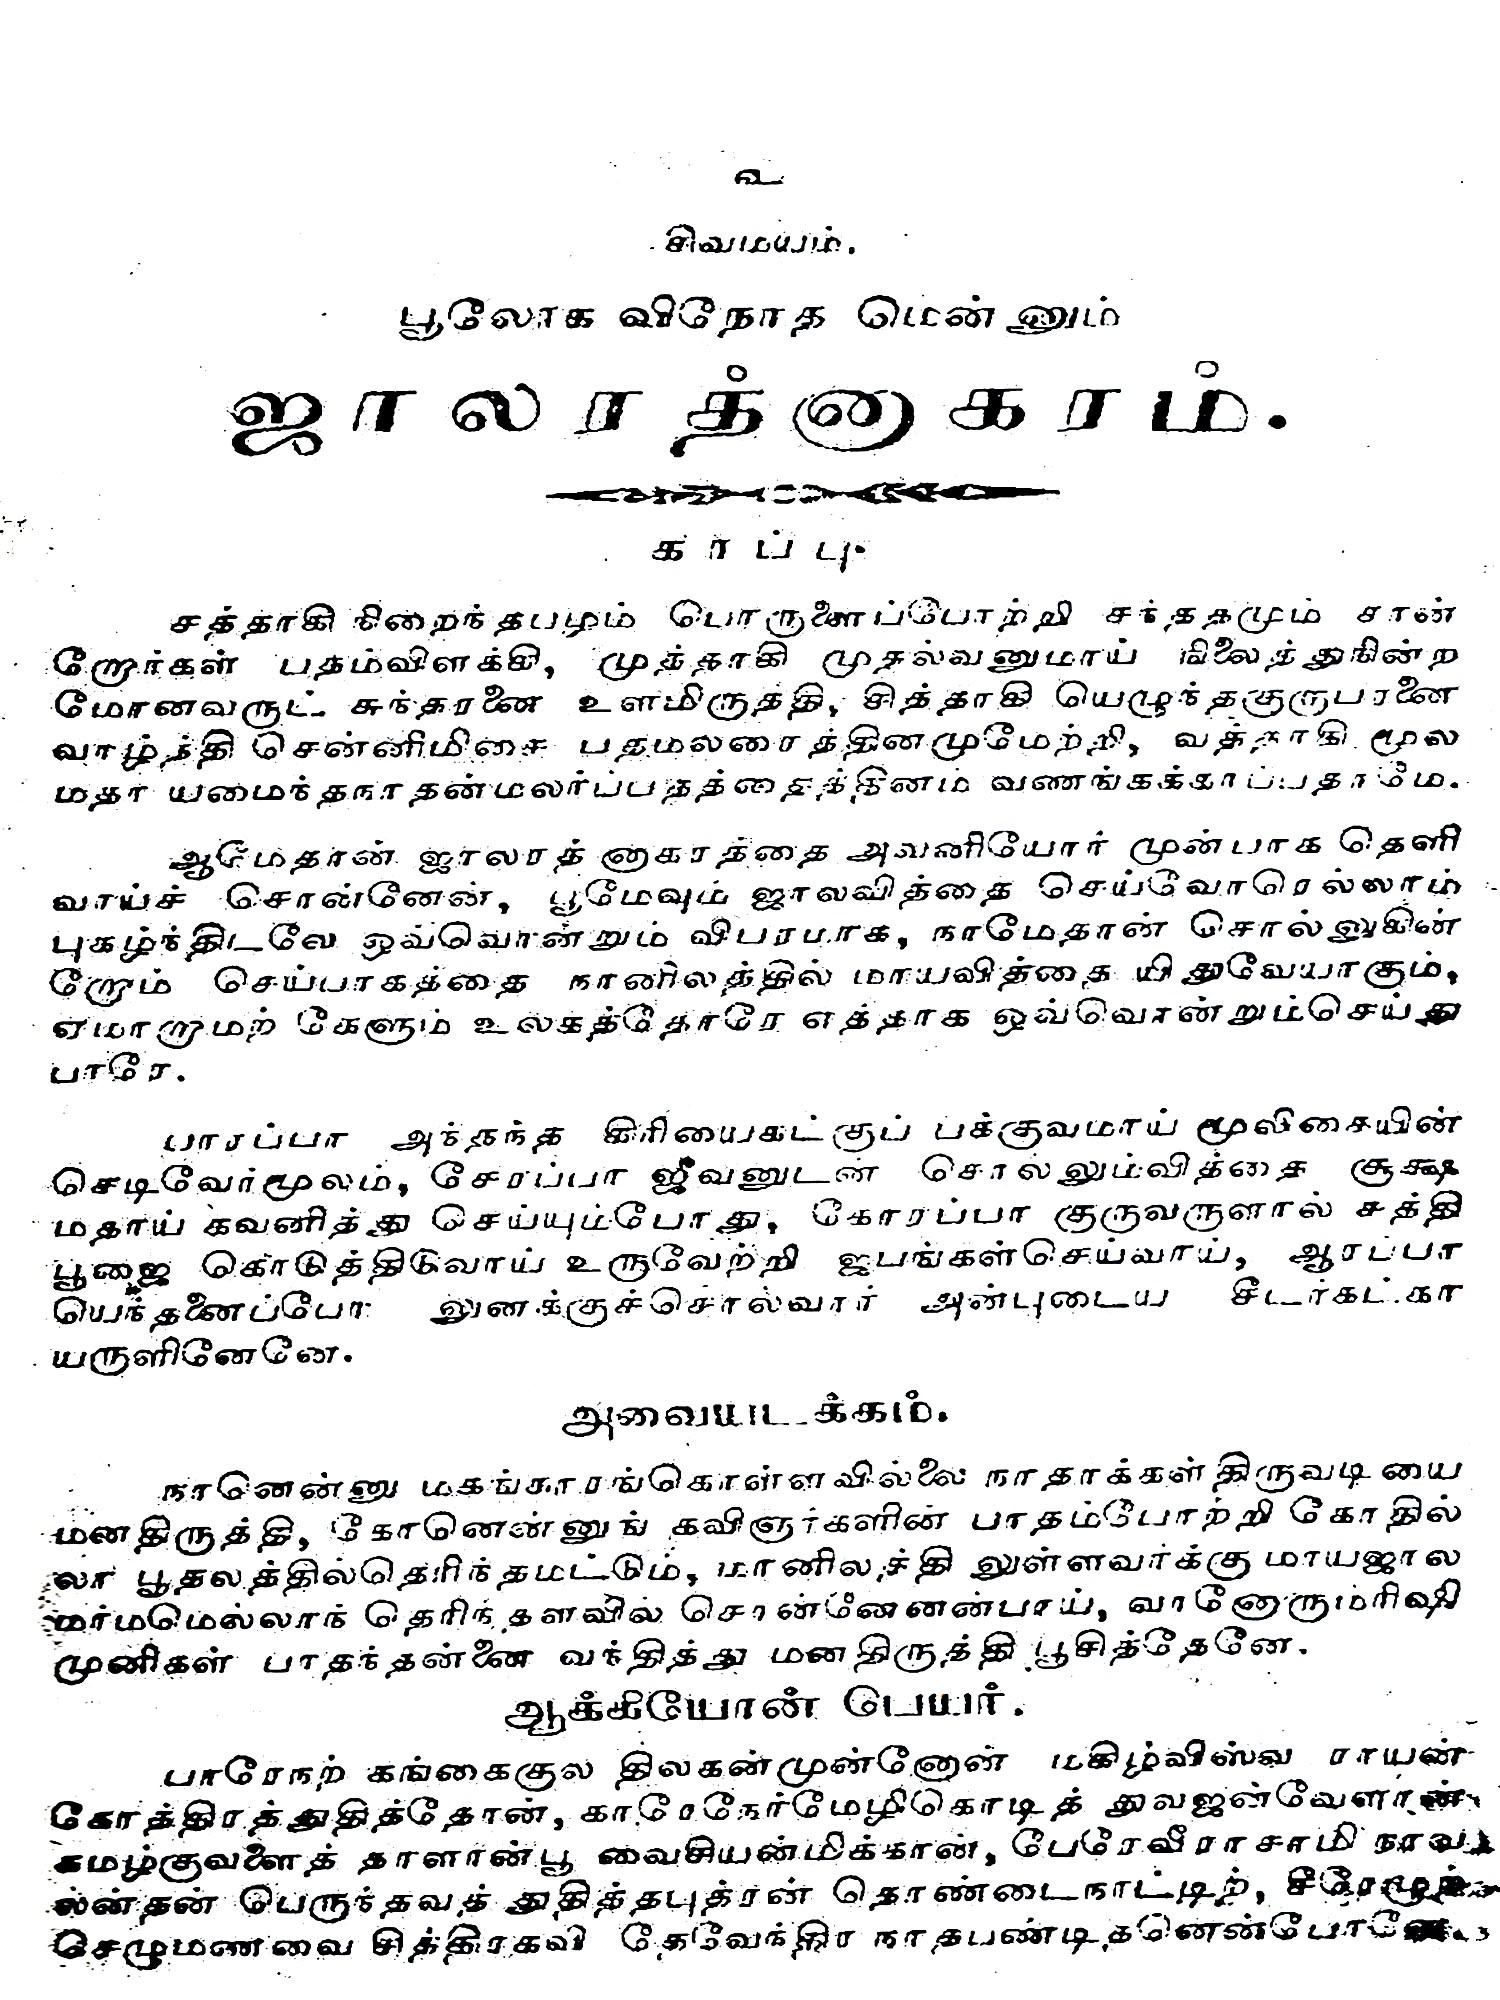 உ
சிவமயம்.
பூலோக விநோத மென்னும்
ஜாலரத்னாகரம்.
காப்பு.
சத்தாகி நிறைந்தபழம் பொருளைப்போற்றி சந்ததமும் சான்
றோர்கள் பதம்விளக்கி, முத்தாகி முதல்வனுமாய் நிலைத்துநின்ற
மோனவருட் சுந்தரனை உளமிருத்தி, சித்தாகி யெழுந்தகுருபரனை
வாழ்த்தி சென்னிமிசை பதமலரைத்தினமுமேற்றி, வத்தாகி மூல
மதா யமைந்தநாதன்மலர்ப்பதத்தைத்தினம் வணங்கக்காப்பதாமே.
ஆமேதான் ஜாலரத்னாகரத்தை அவனியோர் முன்பாக தெளி
வாய்ச் சொன்னேன், பூமேவும் ஜாலவித்தை செய்வோரெல்லாம்
புகழ்ந்திடவே ஒவ்வொன்றும் விபரமாக, நாமேதான் சொல்லுகின்
றோம் செய்பாகத்தை நானிலத்தில் மாயவித்தை யிதுவேயாகும்,
ஏமாறாமற் கேளும் உலகத்தோரே எத்தாக ஒவ்வொன்றும்செய்து
பாரே.
பாரப்பா அந்தந்த கிரியைகட்குப் பக்குவமாய் மூலிசையின்
செடிவேர்மூலம், சேரப்பா ஜீவனுடன் சொல்லும்வித்தை சூக்ஷ
மதாய் கவனித்து செய்யும்போது, கோரப்பா குருவருளால் சத்தி
பூஜை கொடுத்திடுவாய் உருவேற்றி ஜபங்கள்செய்வாய், ஆரப்பா
யெந்தனைப்போ லுனக்குச்சொல்வார் அன்புடைய சீடர்கட்கா
யருளினேனே.
அவையடக்கம்.
நானென்னு மகங்காரங்கொள்ளவில்லை நாதாக்கள்திருவடியை
மனதிருத்தி, கோனென்னுங் கவிஞர்களின் பாதம்போற்றி கோதில்
லா பூதலத்தில்தெரிந்தமட்டும், மானிலத்தி லுள்ளவர்க்கு மாயஜால
மர்மமெல்லாந் தெரிந்தளவில் சொன்னேனன்பாய், வானோரும்ரிஷி
முனிகள் பாதந்தன்னை வந்தித்து மனதிருத்தி பூசித்தேனே.
ஆக்கியோன் பெயர்.
பாரேநற் கங்கைகுல திலகன்முன்னோன் மகிழ்விஸ்வ ராயன்
கோத்திரத்துதித்தோன், காரேநேர்மேழிகொடித் துவஜன்வேளாண்
கமழ்குவளைத் தாளான்பூ வைசியன்மிக்கான், பேரேவீராசாமி நாவ
லன்தன் பெருந்தவத் துதித்தபுத்ரன் தொண்டைநாட்டிற், சீரேமுற்
செழுமணவை சித்திரகவி தேவேந்திர நாதபண்டிதனென்போனே.